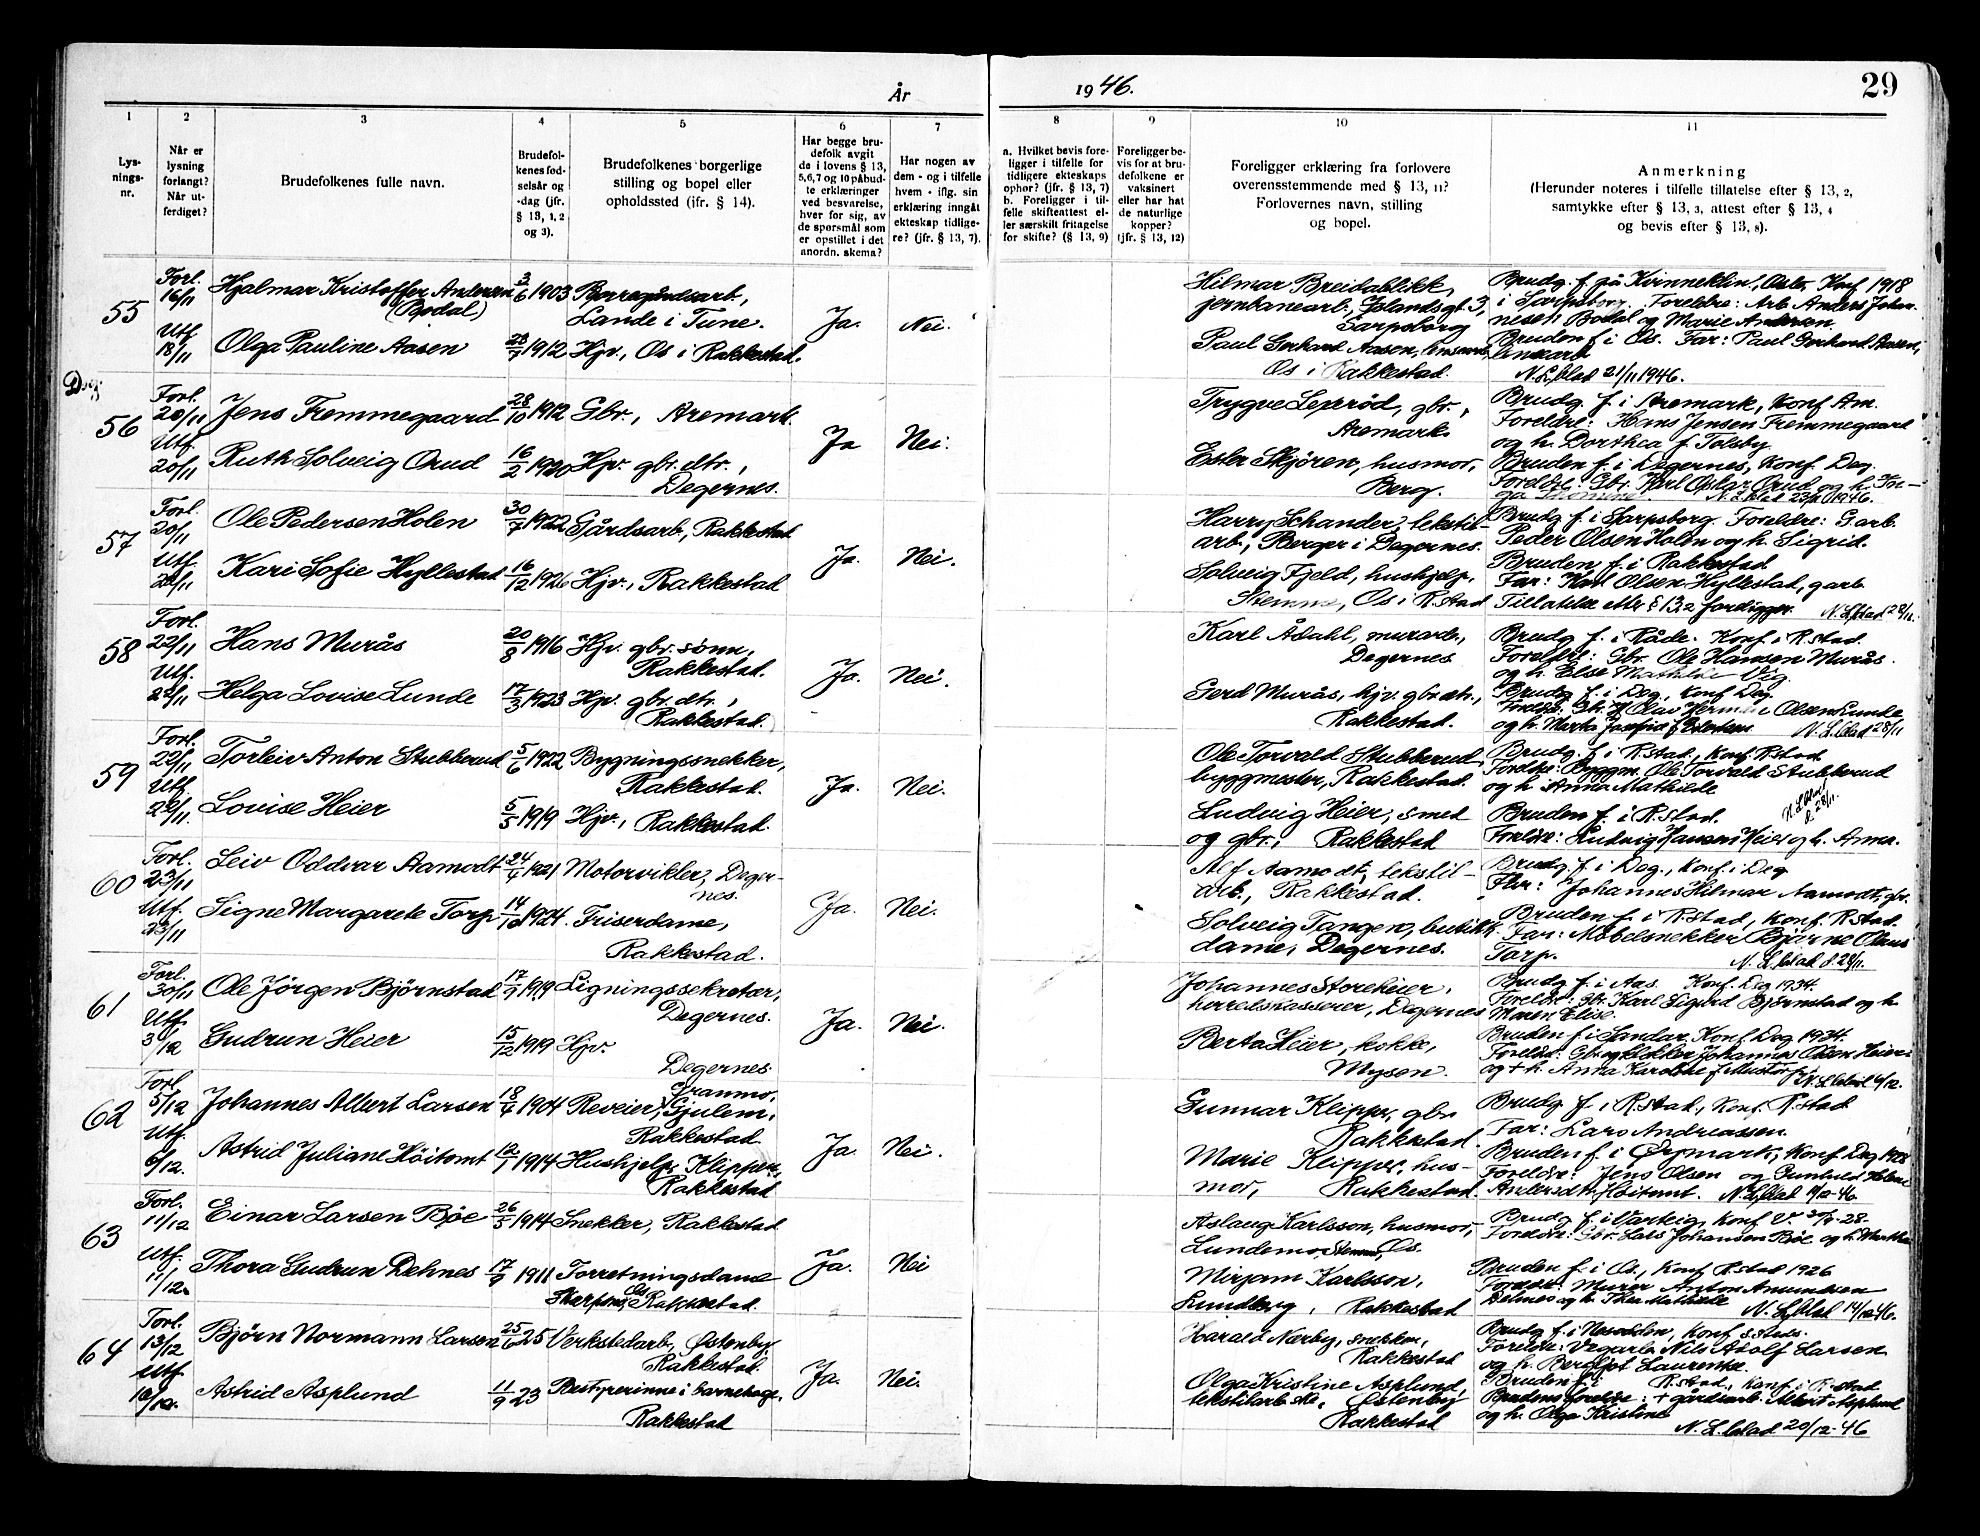 År
1946.
29
1
2
3
4
5
6
7
8
9
10
11
Lys-
nings-
nr.
Når er
lysning
forlangt?
Når ut-
ferdiget?
Brudefolkenes fulle navn.
Brudefol-
kenes fød-
selsår og
-dag (jfr.
§ 13, 1, 2
og 3).
Brudefolkenes borgerlige
stilling og bopel eller
opholdssted (ifr. § 14).
Har begge bru-
defolk avgit
de i lovens § 13,
5,6,7 og 10 påbud-
te erklæringer
ved besvarelse,
hver for sig, av
de spørsmål som
er opstillet i det
anordn. skema?
Har nogen av
dem - og i tilfelle
hvem - iflg. sin
erklæring inngått
ekteskap tidlige-
re? (jfr. § 13, 7).
a. Hvilket bevis fore-
ligger i tilfelle for
tidligere ekteskaps
ophør? (jfr. § 13, 7)
b. Foreligger i til-
felle skifteattest el-
ler særskilt fritagelse
for skifte? (§ 13, 9)
Foreligger be-
vis for at bru-
defolkene er
vaksinert
eller har hat
de naturlige
kopper?
(jfr. § 13, 12)
Foreligger erklæring fra forlovere
overensstemmende med § 13, 11?
Forlovernes navn, stilling
og bopel.
Anmerkning
(Herunder noteres i tilfelle tillatelse efter § 13, 2,
samtykke efter § 13, 3, attest efter § 13, 4
og bevis efter § 13, 8).
55
Forl.
16/11
Utf.
18/11
Hjalmar Kristoffer Andersen
(Bodal)
3/6 1903
Lande i Tune.
Olga Pauline Aasen
1912 Hjv., Os i Rakkestad.
Ja.
Nei.
Hilmar Breidablikk,
jernbanearb., Islandsgt. 3,
Sarpsborg
Paul Gerhard Aasen,
Os i Rakkestad.
Konf 1918
i Sarpsborg. Foreldre: Arb. Anders Johan-
nesen Bodal og Marie Andersen
Bruden f. i Os. Far: Paul Gerhard Aasen,
N. L. blad 21/11 1946.
56
Forl.
20/11
Utf.
20/11
Jens Fremmegaard
28/10 1912
Gbr., Aremark.
Ruth Solveig Orud
16/2 1920
Hjv. gbr.dtr.,
Degernes.
Ja
Nei.
Trygve Lexerød, gbr.,
Aremark.
Ester Skjøren, husmor,
Berg.
Brudg. f. i Aremark, Konf. Am.
Foreldre: Hans Jensen Fremmegaard
og h. Dorthea f. Tolsby
Bruden f. i Degernes, Konf. Deg.
Foreldre: Gbr. Karl Oskar Orud og h. In-
ga N. L. blad 23/11 1946.
57
Forl.
20/11
Utf.
Ole Pedersen Holen
30/7 1922
Gårdsarb., Rakkestad
Kari Sofie Hyllestad
16/12 1926
Hjv., Rakkestad
Ja.
Nei.
Harry Schander, tekstil-
arb., Berger i Degernes.
Solveig Fjeld, hushjelp,
Os i R.stad
Brudg. f. i Sarpsborg. Foreldre: Garb.
Peder Olsen Holen og h. Sigrid.
Bruden f. i Rakkestad
Far: Karl Olsen Hyllestad, garb.
Tillatelse etter § 13,2 foreligger. N. L. blad 28/11.
58
Forl.
22/11
Utf.
22/11
Hans Murås
20/8 1916
Hjv. gbr. sønn,
Rakkestad.
Helga Lovise Lunde
17/3 1923
Hjv. gbr. dtr.,
Rakkestad.
Ja.
Nei.
Karl Ådahl, murarb.,
Degernes
Gerd Murås, hjv. gbr. dtr.,
Rakkestad.
Brudg. f. i Råde. Konf. i R.stad.
Foreldre: Gbr. Ole Hansen Murås
og h. Else Mathilde Vig.
Brudg f. i Deg., Konf Deg.
Olsen Lunde
N. L. blad 28/11
59
Forl.
22/11
Utf.
22/11.
Torleiv Anton Stubberud
5/6 1922
Bygningssnekker,
Rakkestad.
Lovise Heier
5/5 1919
Hjv., Rakkestad.
Ja.
Nei.
Ole Torvald Stubberud
byggmester, Rakkestad.
Ludvig Heier, smed
og gbr., Rakkestad
Brudg. f. i R.stad, konf. R.stad
Foreldre: Byggm. Ole Torvald Stubberud
og h. Anna Mathilde
N. L. blad
d. 28/11.
Bruden f. i R.stad.
Foreldre: Ludvig Hansen Heier og h. Anna.
60
Forl.
23/11
Utf.
23/11
Leiv Oddvar Aamodt
1921
Motorvikler, Deger-
nes.
Signe Margarete Torp
14/10 1924.
Friserdame,
Rakkestad.
Ja.
Nei.
Alf Aamodt, tekstil-
arb., Rakkestad.
Solveig Tangen, butikk-
dame, Degernes.
Brudg f. i Deg., Konf. i Deg
Far: Johannes Hilmar Aamodt, gbr.
Bruden f. i R.stad, Konf. R.stad.
Far: Møbelsnekker Bjarne Olaus
Torp.
N. L. blad d. 28/11.
61
Forl.
30/11
Utf.
3/12
Ole Jörgen Björnstad
17/9 1919
Ligningssekretær,
Degernes.
Gudrun Heier
15/12 1919
Hjv.
Degernes
Ja.
Nei.
Johannes Storeheier,
herredskasserer, Degernes
Berta Heier, kokke,
Mysen.
Brudg f. i Aas. Konf. Deg 1934.
Foreldre: Gbr. Karl Sigurd Björnstad og h.
Maren Elise.
Bruden f. i Sandar. Konf. Deg 1934.
Johannes Olsen Heier
og + h. Anna Karoline f. Mustorp.
N. L. blad 4/12.
62
Forl.
5/12
Utf.
6/12.
Johannes Albert Larsen
1904
Reveier, Granmo,
Gjulem,
Rakkestad
Astrid Juliane Höitomt
12/7 1914
Hushjelp, Klipper,
Rakkestad
Ja.
Nei.
Gunnar Klipper, gbr
Rakkestad.
Marie Klipper, hus-
mor, Rakkestad.
Brudg. f. i R.stad., Konf. R.stad
Far: Lars Andreassen.
Bruden f. i Örymark, Konf. Deg 1928
Foreldre: Jens Olsen og Gunhild Helene
Andersdtr. Höitomt. N. L. blad 11/12-46
63
Forl.
11/12
Utf.
11/12.
Einar Larsen Bøe
26/5 1914
Snekker, Rakkestad
Thora Gudrun Dehnes
17/9 1911
Forretningsdame
Os
Rakkestad.
Ja.
Nei
Aslaug Karlsson, husmor,
Lundemo, Os.
Mirjam Karlsson,
Lundberg, Rakkestad
Brudg f. i Varteig, Konf V.
Foreldre: Gbr. Lars Johansen Bøe og h.
Bruden f. i Os, Konf R.stad 1926
Foreldre: Murer Anton Amundsen
Dehnes og h. Thea Mathilde N. L. blad 14/12 46.
64
Forl.
13/12
Utf
Björn Normann Larsen
25/6 25
Verkstedarb., Østenby,
Rakkestad.
Astrid Asplund
11/9 23
Bestyrerinne i barnehage,
Rakkestad
Ja.
Nei.
Harald Nærby, snekker,
Rakkestad
Olga Kristine Asplund,
tekstilarbske, Østenby
Rakkestad
Brudg f. i Nesodden, Konf. s. steds.
Foreldre: Vegarb. Nils Adolf Larsen
og h. Bergljot Laurentse.
Bruden f. i R.stad, Konf. i R.stad
Brudens foreldre: + gårdsarb. Albert Asplund
og h. Olga Kristine
N. L. blad 20/12-46